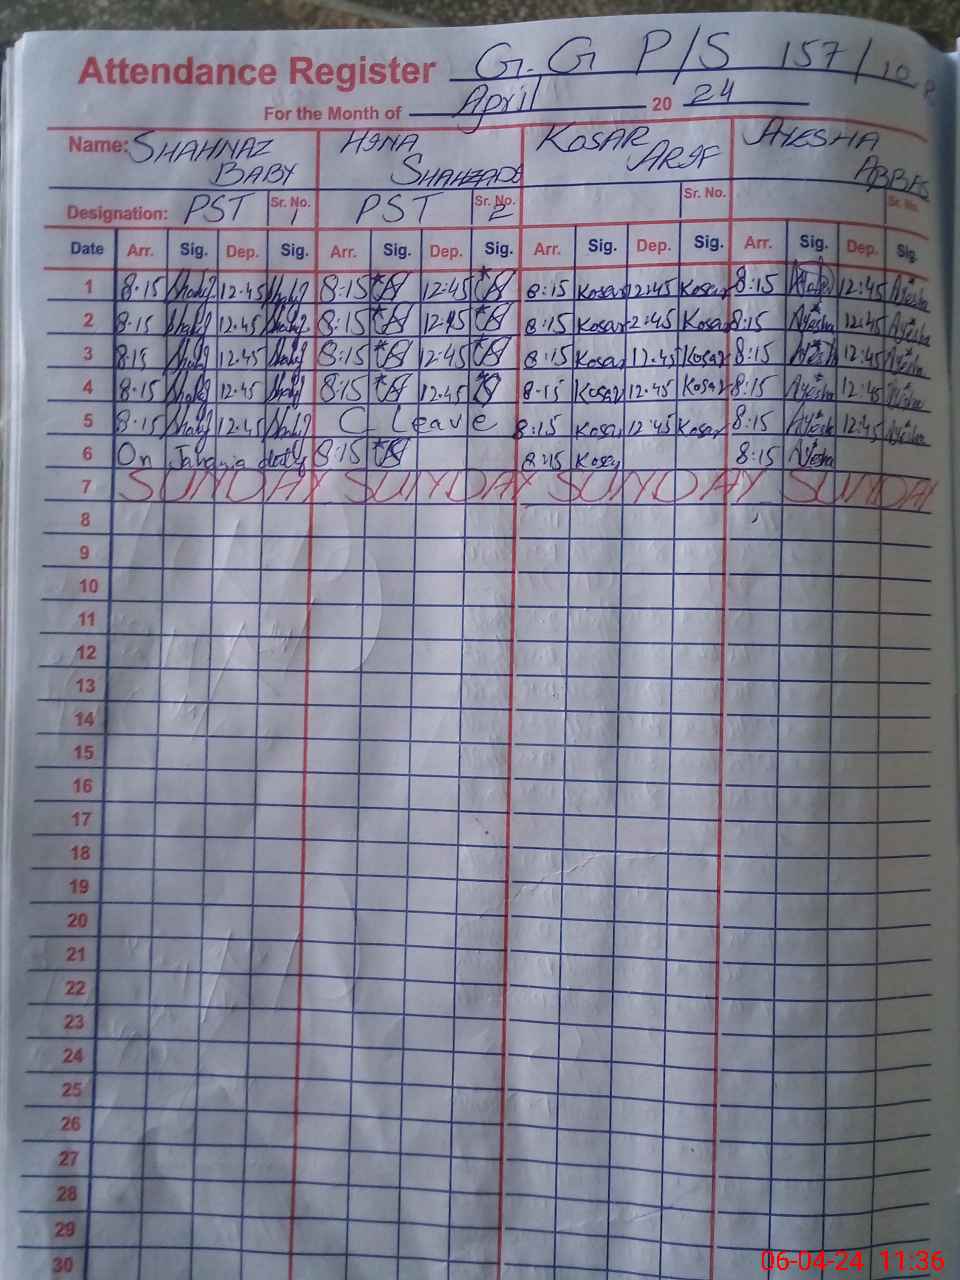 Attendance Register G.G P/S 157/10.R
For the Month of April 20 24
Name: SHAHNAZ BABY HINA SHAHZADI KOSAR ARIF AYESHA ABBES
Designation: PST Sr. No. 1 PST Sr. No. 2 Sr. No. Sr. No.
Date Arr. Sig. Dep. Sig. Arr. Sig. Dep. Sig. Arr. Sig. Dep. Sig. Arr. Sig. Dep. Sig.
1 8:15 12:45 8:15 12:45 8:15 Kosar 12:45 Kosar 8:15 12:45 Ayesha
2 8:15 12:45 8:15 12:45 8:15 Kosar 2:45 Kosar 8:15 Ayesha 12:45 Ayesha
3 8:15 12:45 8:15 12:45 8:15 Kosar 12:45 Kosar 8:15 12:45 Ayesha
4 8:15 12:45 8:15 12:45 8:15 Kosar 12:45 Kosar 8:15 Ayesha 12:45
5 8:15 12:45 C Leave 8:15 Kosar 12:45 Kosar 8:15 Ayesha 12:45 Ayesha
6 On duty 8:15 8:15 Kosar 8:15 Ayesha
7 SUNDAY SUNDAY SUNDAY SUNDAY
8
9
10
11
12
13
14
15
16
17
18
19
20
21
22
23
24
25
26
27
28
29
30
06-04-24 11:36